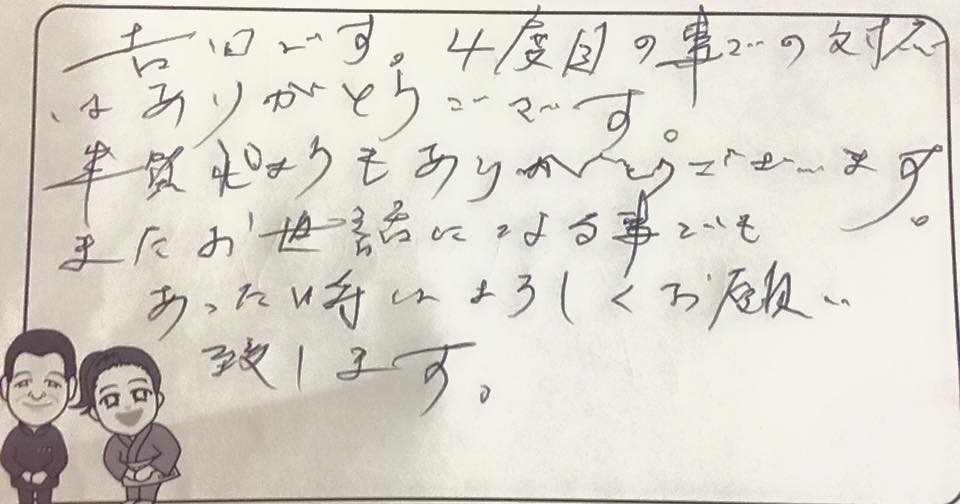 吉田です。4度目の事での対応
はありがとうございます。
まりもありがとうございます。
またお世話になる事でも
あったい時はよろしくお願い
致します。